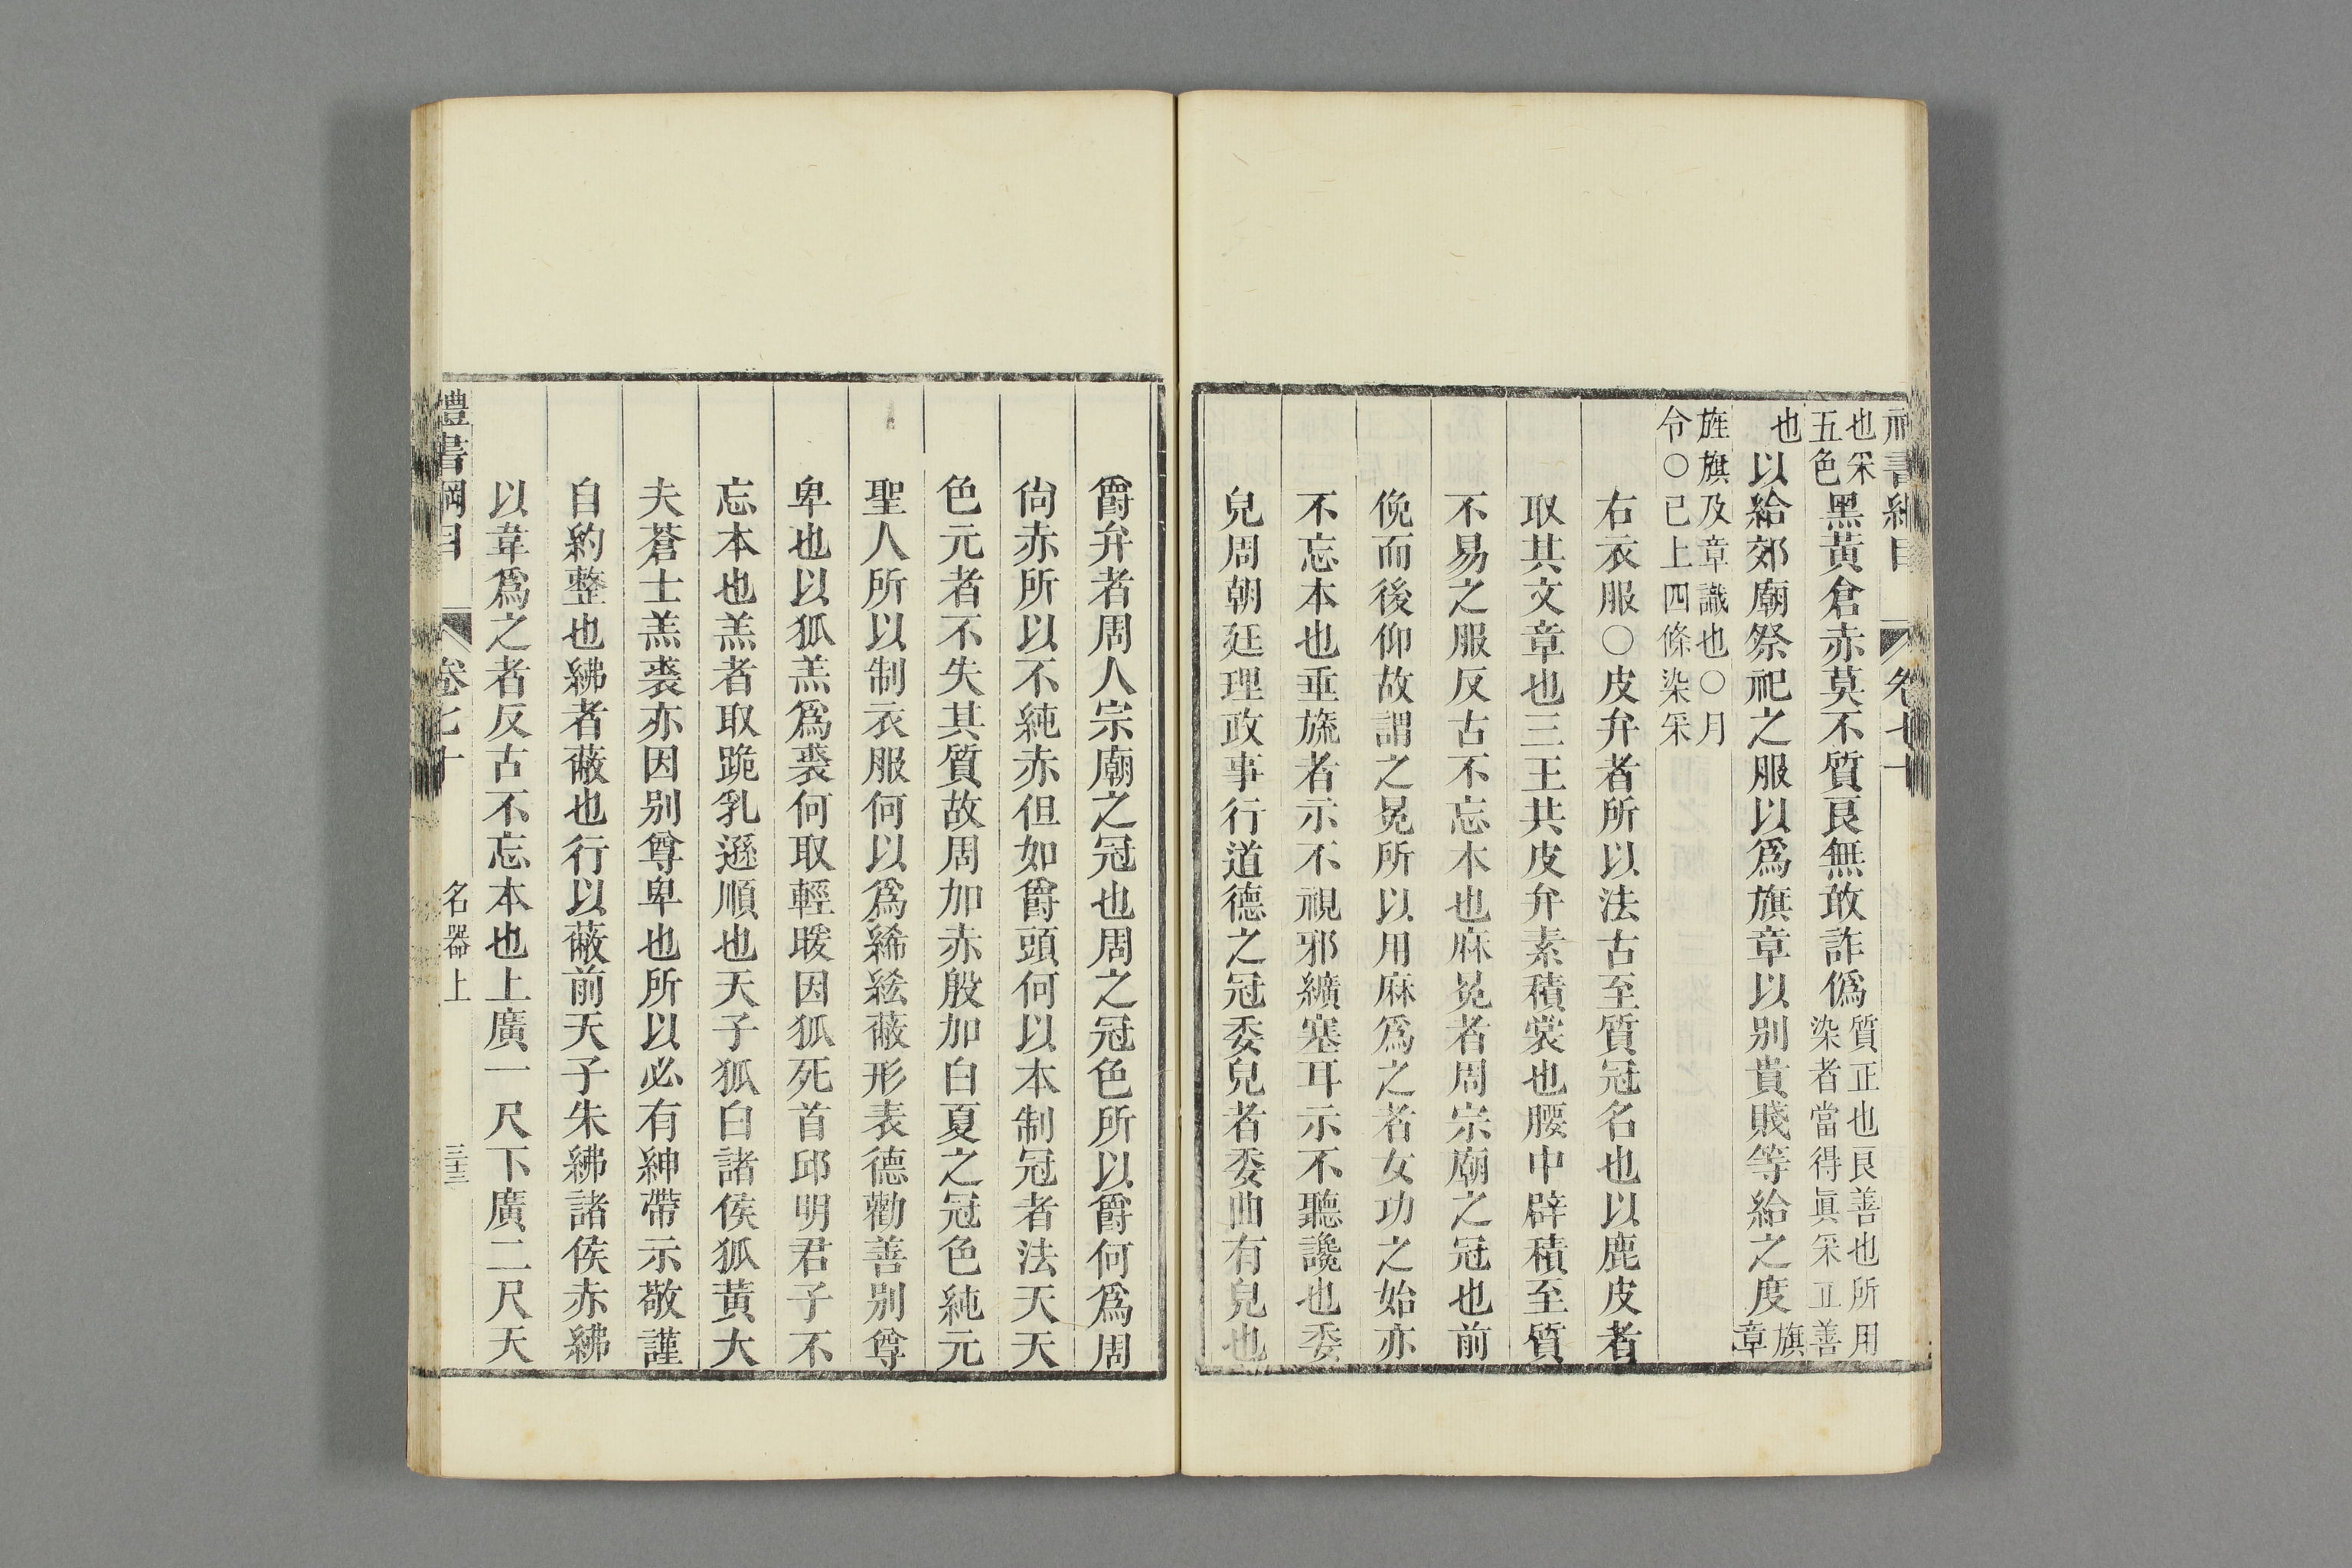 也采五色黑黃倉赤莫不質良無敢詐僞質正也良善也所用染者當得眞采正善
也以給郊廟祭祀之服以爲旗章以别貴賤等給之度旗章
旌旗及章識也○月令○已上四條染采
右衣服○皮弁者所以法古至質冠名也以鹿皮者
取其文章也三王共皮弁素積裳也腰中辟積至質
不易之服反古不忘本也麻冕者周宗廟之冠也前
俛而後仰故謂之冕所以用麻爲之者女功之始亦
不忘本也垂旒者示不視邪纊塞耳示不聽讒也委
皃周朝廷理政事行道德之冠委皃者委曲有皃也
爵弁者周人宗廟之冠也周之冠色所以爵何爲周
尙赤所以不純赤但如爵頭何以本制冠者法天天
色元者不失其質故周加赤殷加白夏之冠色純元
聖人所以制衣服何以爲絺綌蔽形表德勸善别尊
卑也以狐羔爲裘何取輕暖因狐死首邱明君子不
忘本也羔者取跪乳遜順也天子狐白諸侯狐黃大
夫蒼士羔裘亦因别尊卑也所以必有紳帶示敬謹
自約整也紼者蔽也行以蔽前天子朱紼諸侯赤紼
以韋爲之者反古不忘本也上廣一尺下廣二尺天
禮書綱目 卷七十 名器上 三十三